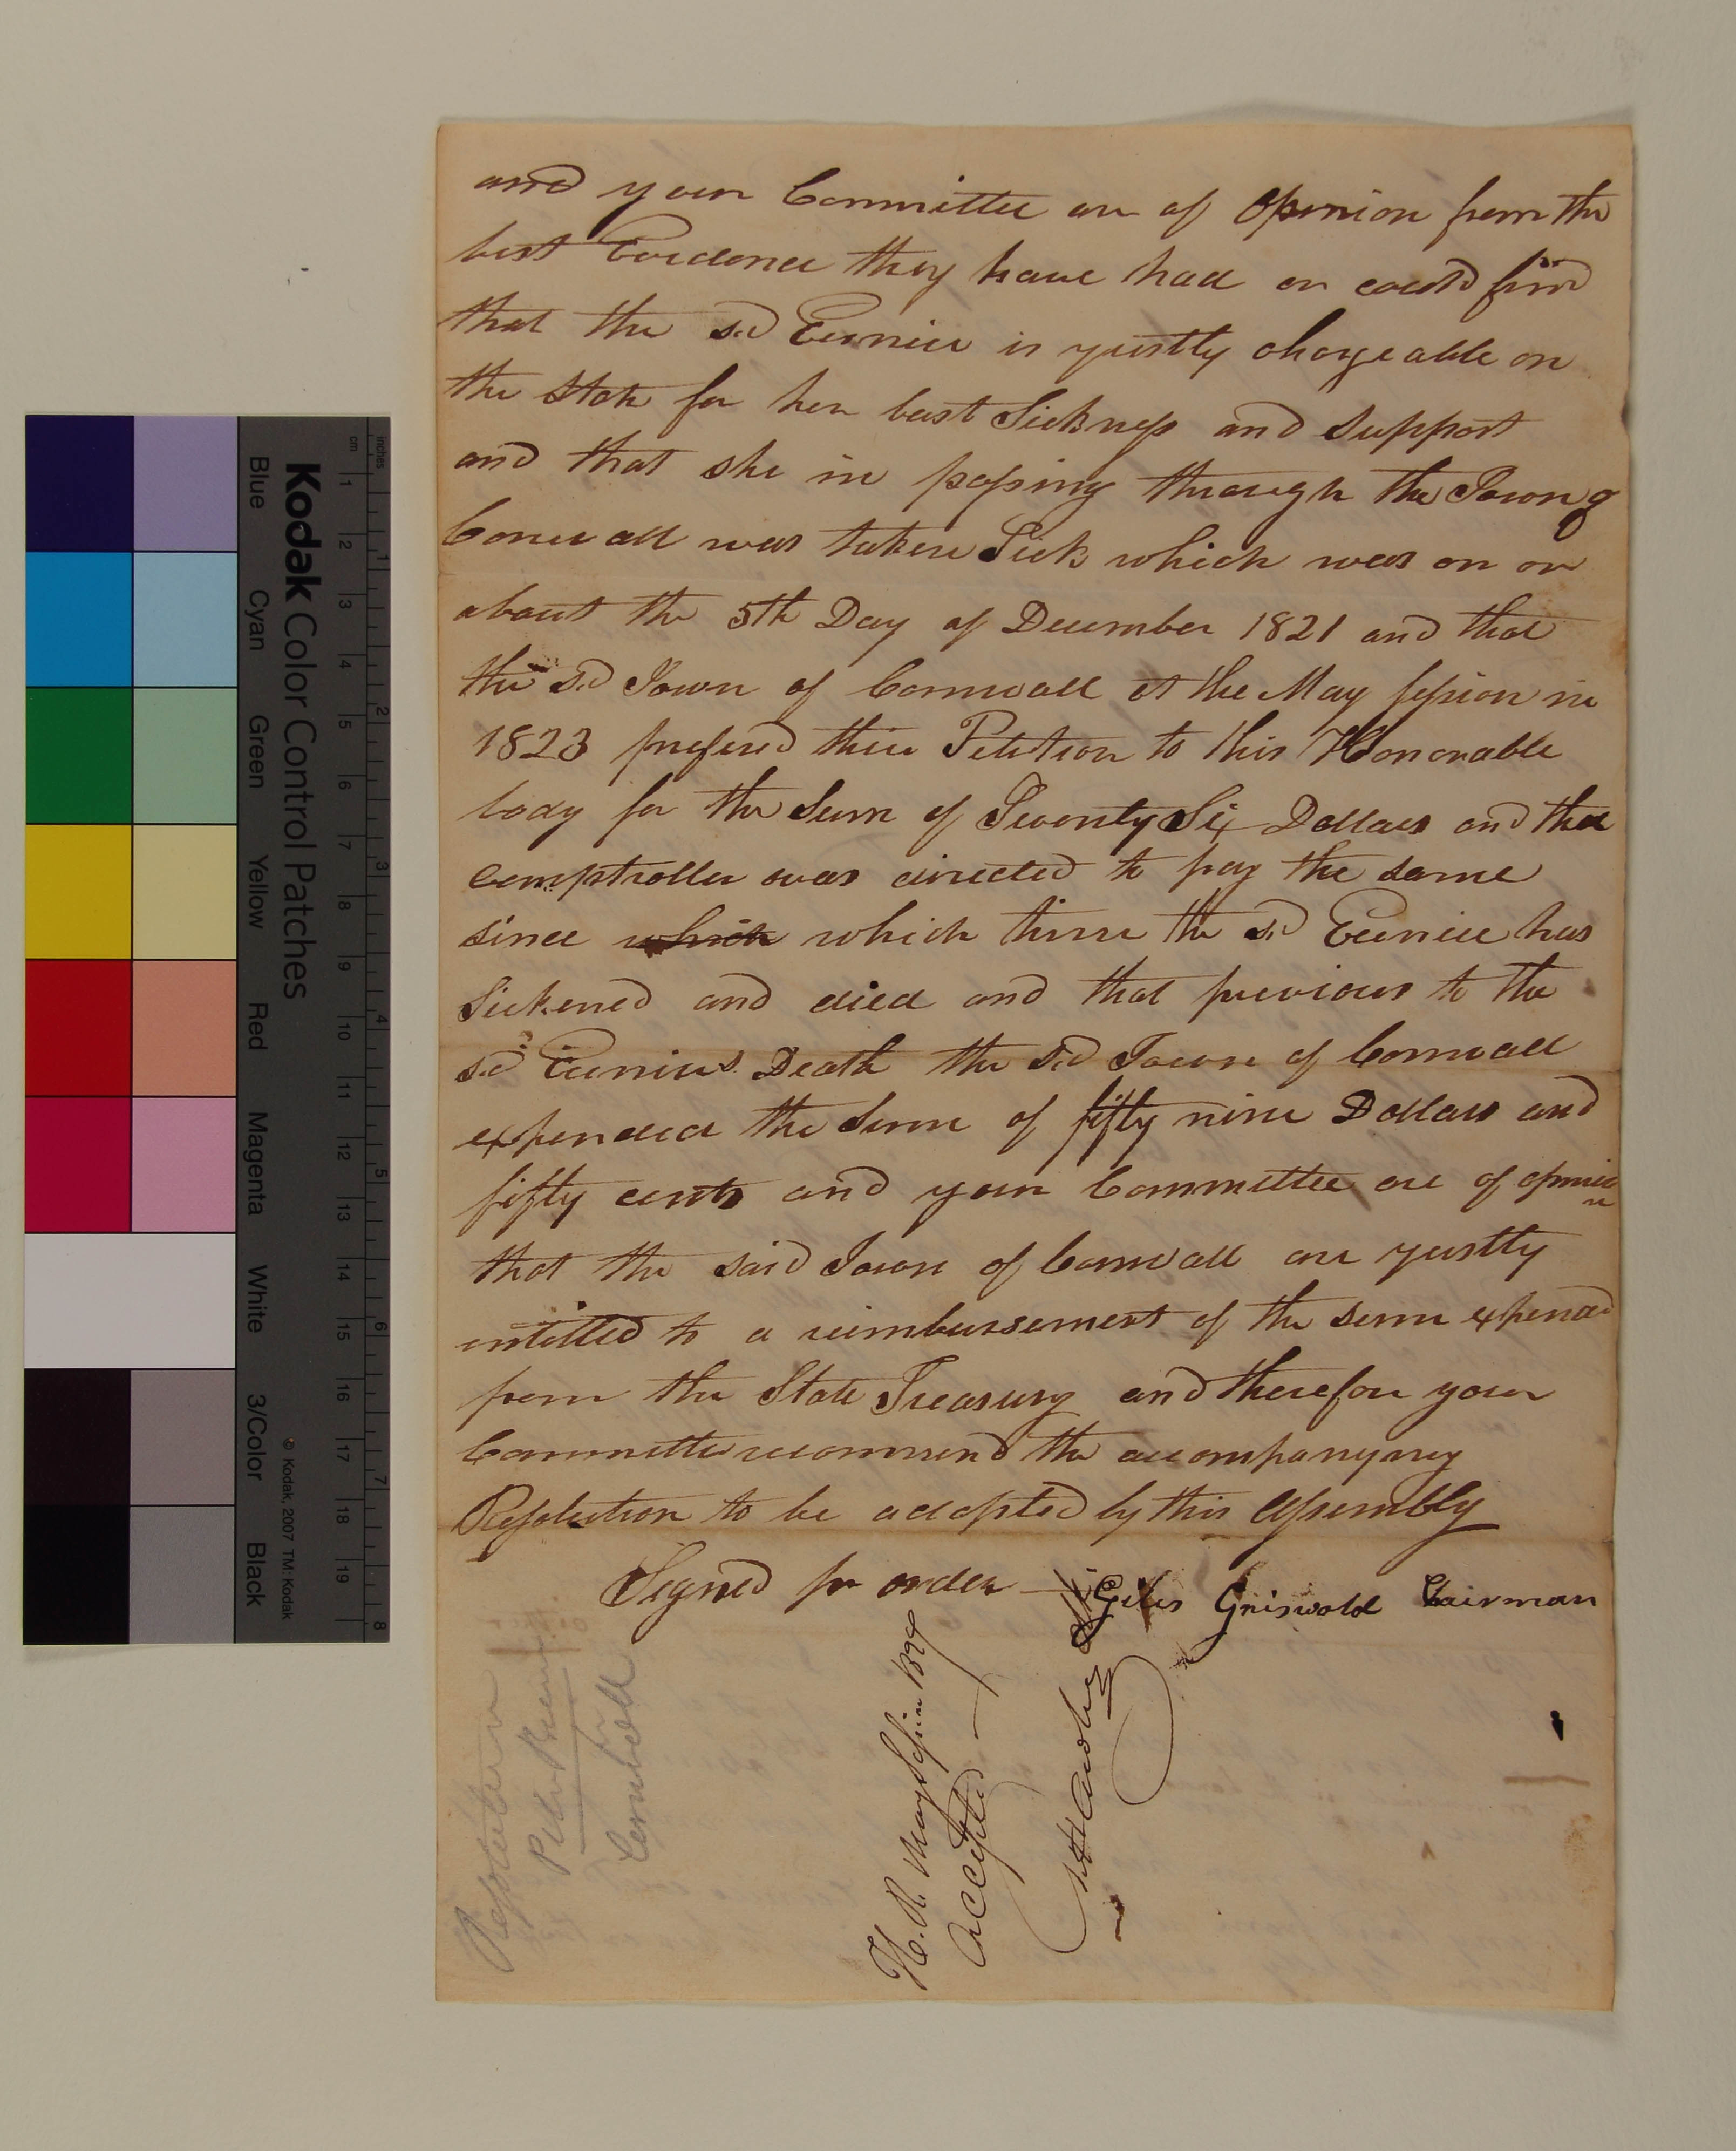 and your Committee are of Opinion from the
best Evidence they have had or could find
that the sd Eunice is justly chargeable on
the State for her last Sickness and support
and that she in passing through the Town of
Cornwall was taken Sick which was on or
about the 5th Day of December 1821 and that
the sd Town of Cornwall at the May session in
1823 prefered their Petition to this Honorable
body for the Sum of Twenty Six Dollars and the
comptroller was directed to pay the same
since which which time the sd Eunice has
Sickened and died and that previous to the
sd Eunices Death the sd Town of Cornwall
expended the Sum of fifty nine Dollars and
fifty cents and your Committee are of opinion
that the said Town of Cornwall are justly
entitled to a reimbursement of the sum expended
from the State Treasury and therefore your
Committee recommend the accompanying
Resolution to be adopted by this Assembly
Signed pr order Giles Griswold Chairman
H. R. May Session 1824
Accepted
Resolution
Petn
Cornwall
Kodak Color Control Patches
Blue Cyan Green Yellow Red Magenta White 3/Color Black
© Kodak, 2007 TM: Kodak
cm 1 2 3 4 5 6 7 8 9 10 11 12 13 14 15 16 17 18 19
inches 1 2 3 4 5 6 7 8